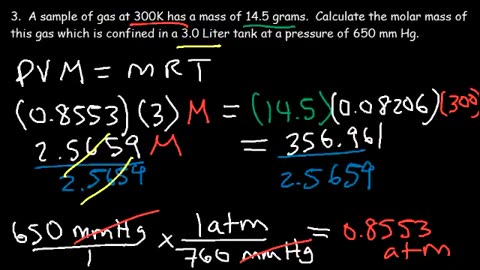 3. A sample of gas at 300K has a mass of 14.5 grams. Calculate the molar mass of
this gas which is confined in a 3.0 Liter tank at a pressure of 650 mm Hg.
PVM = mRT
(0.8553)(3) M = (14.5)(0.08206)(300)
2.5659 M = 356.961
2.5659 2.5659
650 mmHg / 1 x 1 atm / 760 mmHg = 0.8553 atm